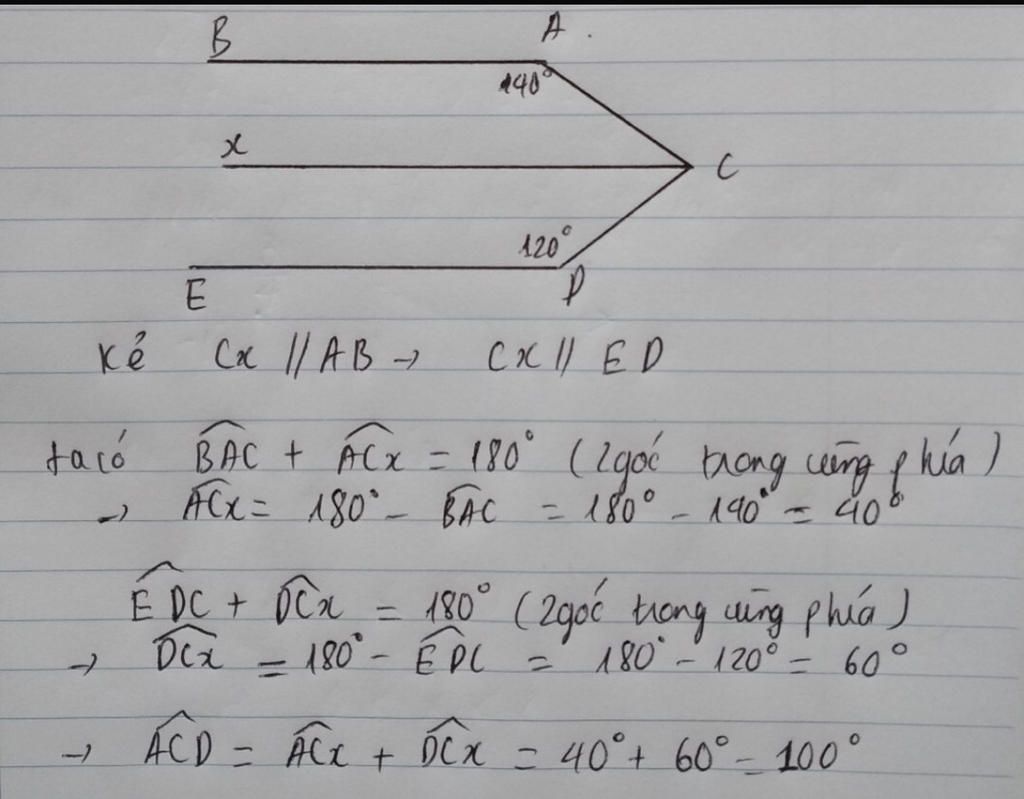 B A .
140°
x C
120°
E D
Kẻ Cx // AB → Cx // ED
ta có \widehat{BAC} + \widehat{ACx} = 180° (2 góc trong cùng phía)
→ \widehat{ACx} = 180° - \widehat{BAC} = 180° - 140° = 40°
\widehat{EDC} + \widehat{DCx} = 180° (2 góc trong cùng phía)
→ \widehat{DCx} = 180° - \widehat{EDC} = 180° - 120° = 60°
→ \widehat{ACD} = \widehat{ACx} + \widehat{DCx} = 40° + 60° = 100°